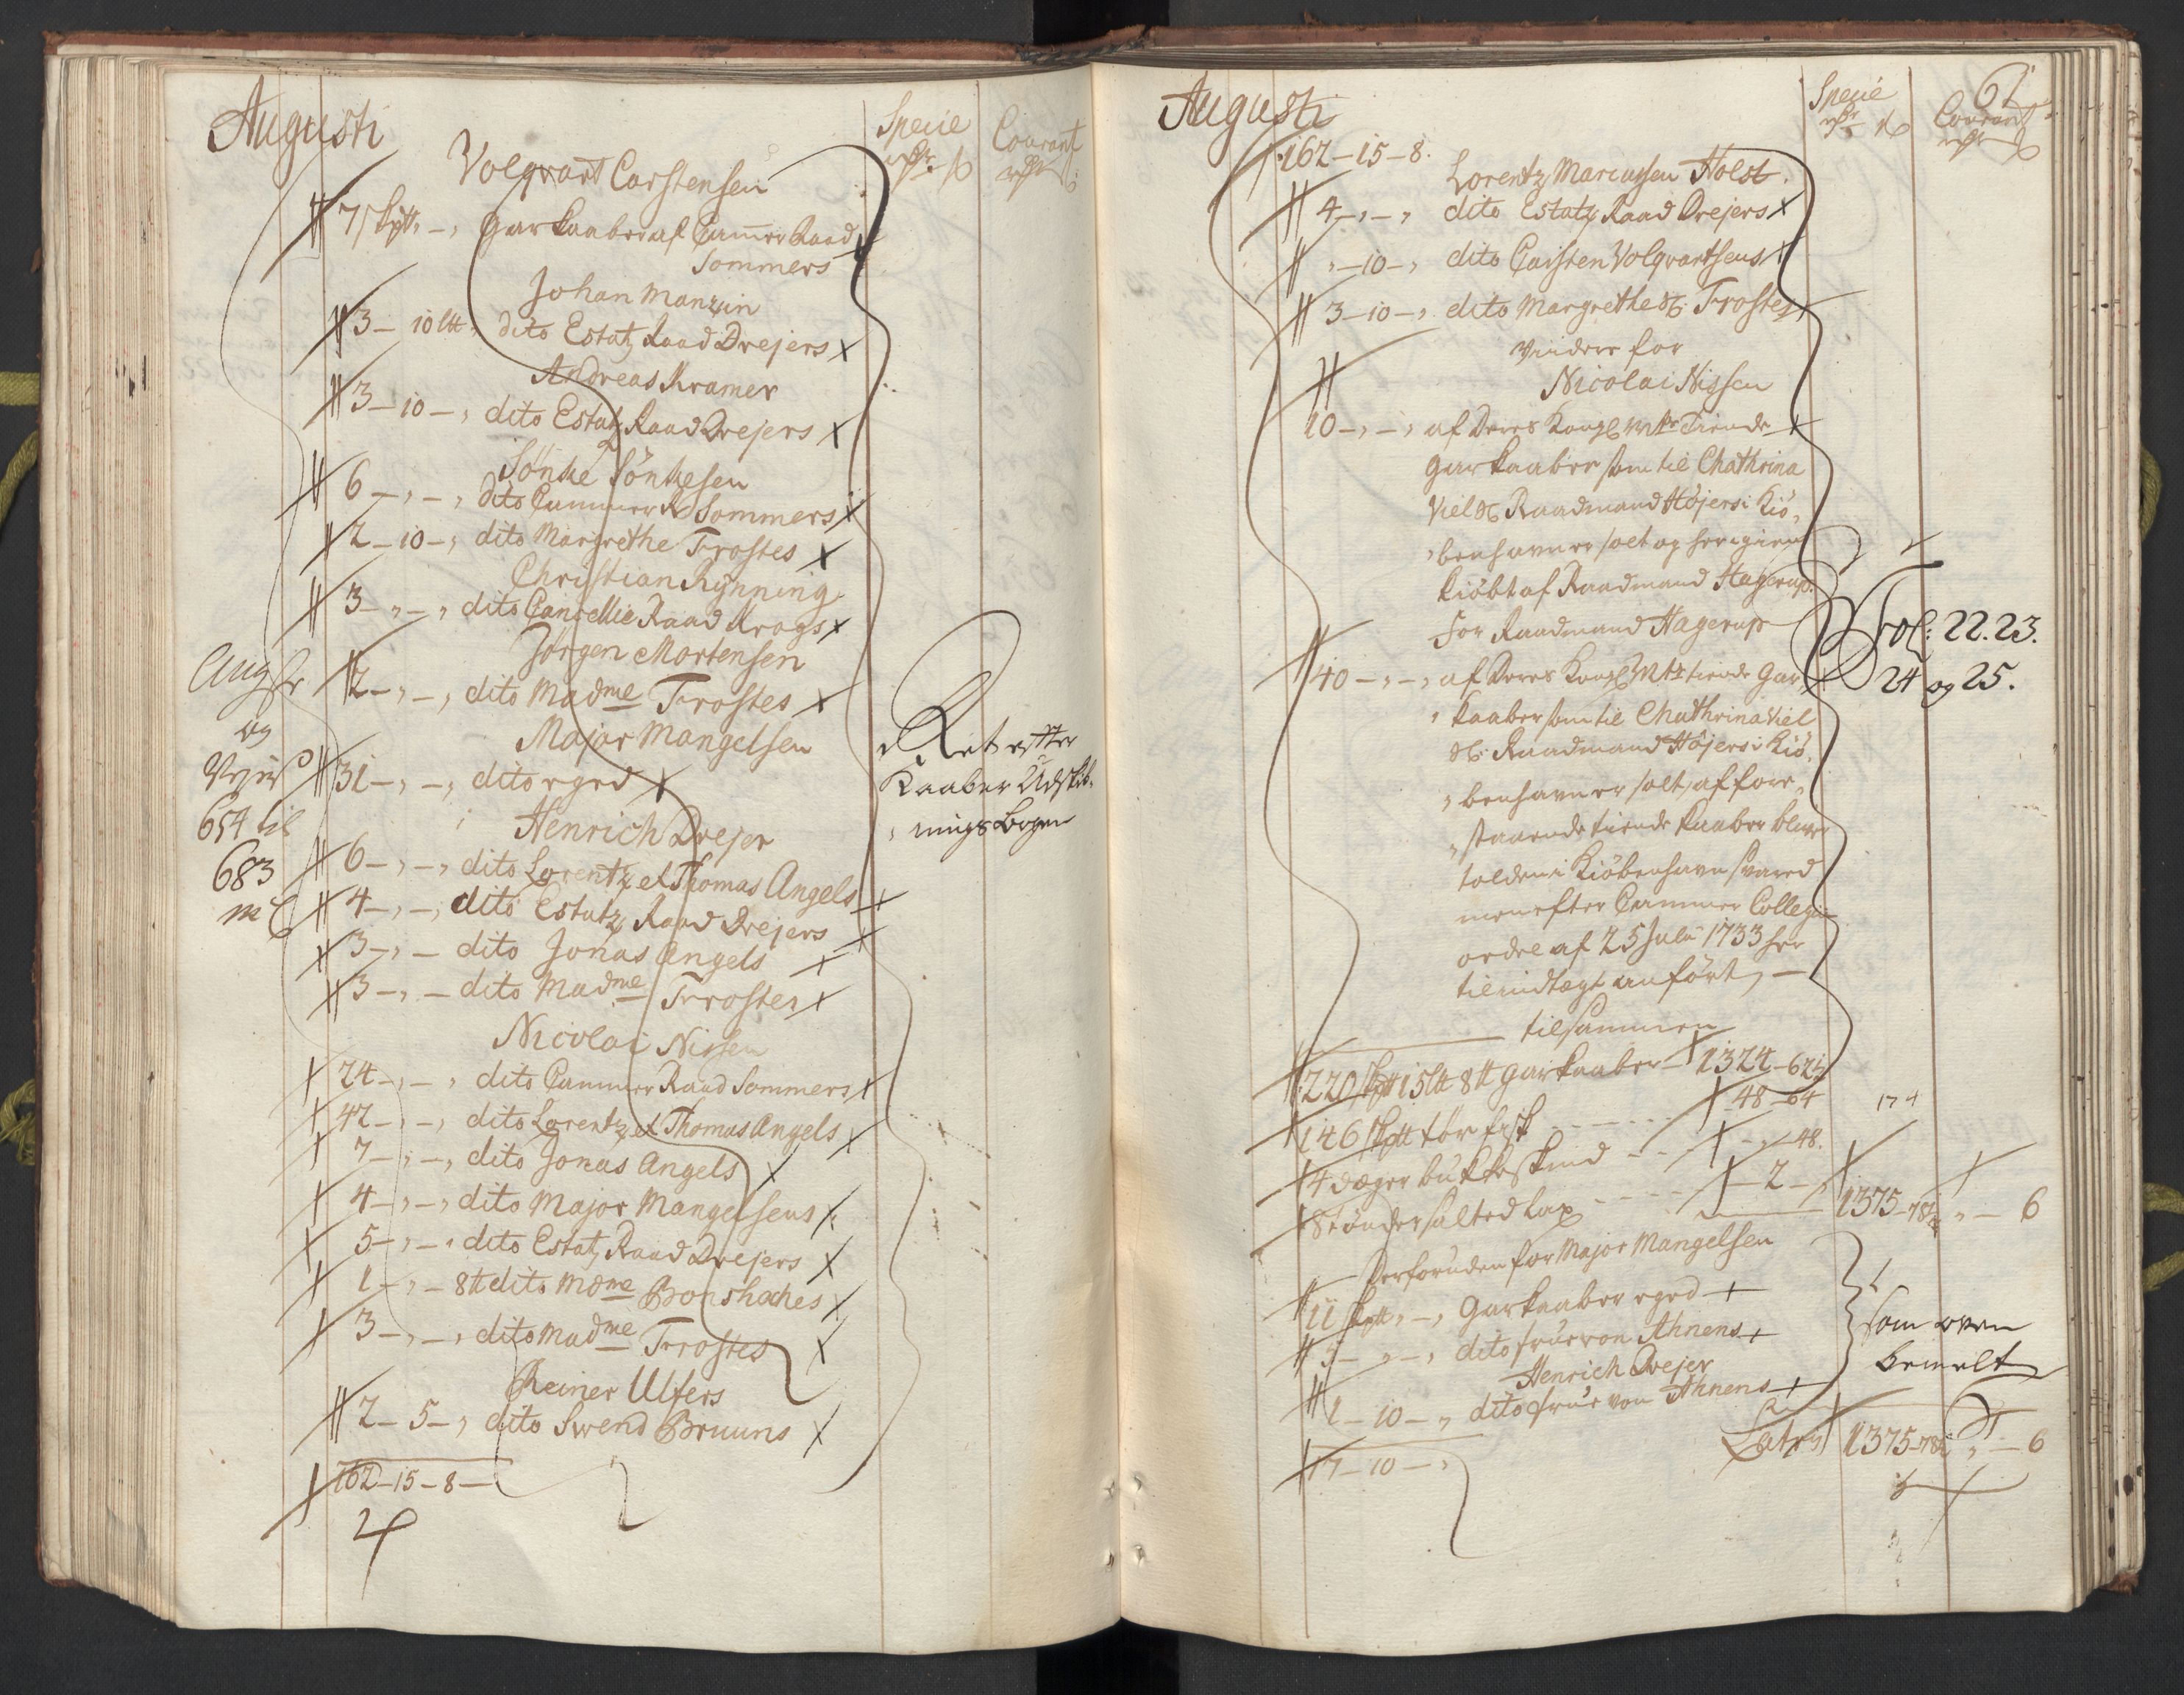 Augusti
Specie
Courant
Volqvart Carstensen
7 skp, - , Garkaaber af Cammer Raad
Sommers
Johan Manzin
3 - 10 ltt , dito Estatz Raad Drejers
Andreas Kramer
3 - 10 - , dito Estatz Raad Drejers
Sönke Sönkesen
6 - , - , dito Cammer R Sommers
2 - 10 - , dito Margrethe Frostes
Christian Rynning
3 - , - , dito Cancellie Raad Krags
Jörgen Mortensen
2 - , - , dito Madme Frostes
Major Mangelsen
31 - , - , dito eged
og
654 til
683
Henrich Drejer
Ret efter
Kaaber Udskib-
nings Bogen
6 - , - , dito Lorentz et Thomas Angels
4 - , - , dito Estatz Raad Drejers
3 - , - dito Jonas Angels
3 - , - dito Madme Frostes
Nicolai Nissen
24 - , - , dito Cammer Raad Sommers
42 - , - , dito Lorentz et Thomas Angels
7 - , - , dito Jonas Angels
4 - , - , dito Major Mangelsens
5 - , - , dito Estatz Raad Drejers
1 - , - 8 tt dito Mdme Bonshaches
3 - , - , dito Madme Frostes
Reiner Ulfers
2 - 5 - , dito Swend Bruuns
162 - 15 - 8 -
Augusti
Specie
Courant
61
162 - 15 - 8.
Lorentz Marcussen Holst.
4 - , - , dito Estatz Raad Drejers
, - 10 - , dito Carsten Volqvartsens
3 - 10 - , dito Margrethe Sl. Frostes
Videre for
Nicolai Nissen
10 - , - , af Deres Kongl Mts Tiende
Garkaaber som til Chathrina
Viel Sl. Raadmand Höjers i Kiö,
, benhavn er solt og her igien
kiöbt af Raadmand Hagerup.
For Raadmand Hagerup
40 - , - , af Deres Kongl Mts tiende Gar
, kaaber som til Chathrina Viel
Sl. Raadmand Höjers i Kiö,
, benhavn er solt, af fore,
, staaende tiende Kaaber bliver
tolden i Kiöbenhavn svared
men efter Cammer Collegii
ordre af 25 Julii 1733 her
til indtægt anfört, -
Fol: 22. 23.
24 og 25.
tilsammen
220 skp 15 ltt 8 tt garkaaber - 1324 - 62½
146 skp tör fisk - - - - 48 - 64
4 deger bukkeskind - - - , - 48.
8 tönder salted Lax - - - - 2 - ,
1375 - 78½ , - 6
Derforuden for Major Mangelsen
11 skp , - , Garkaaber eged
5 - , - , dito frue von Ahnens
Henrich Drejer
1 - 10 - , dito frue von Ahnens
Som oven
bemelt
17 - 10 - ,
Latus 1375 - 78½ , - 6